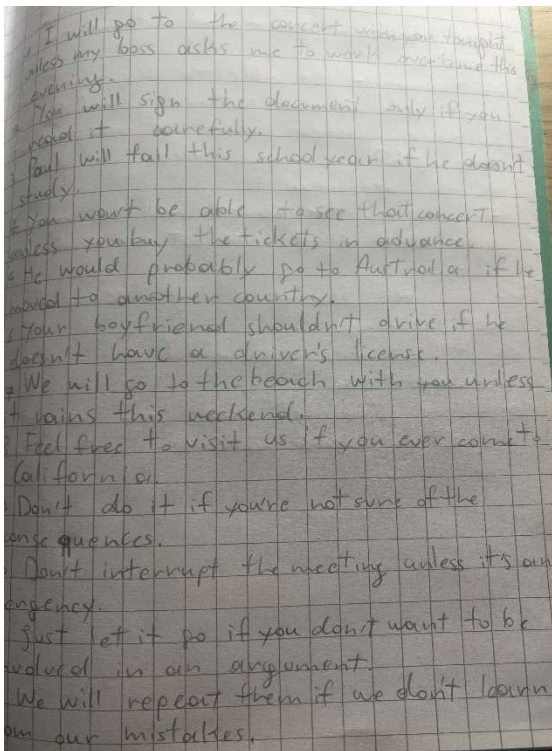 I will go to the concert with you tonight
unless my boss asks me to work overtime this
evening.
You will sign the document only if you
read it carefully.
Paul will fail this school year if he doesn't
study.
You won't be able to see that concert
unless you buy the tickets in advance.
5 He would probably go to Australia if he
moved to another country.
6 Your boyfriend shouldn't drive if he
doesn't have a driver's license.
7 We will go to the beach with you unless
it rains this weekend.
8 Feel free to visit us if you ever come to
California.
Don't do it if you're not sure of the
consequences.
Don't interrupt the meeting unless it's an
engency.
Just let it go if you don't want to be
volved in an argument.
We will repeat them if we don't learn
om our mistakes.